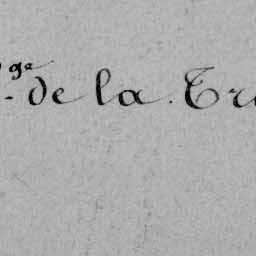 ge
- de la Tr